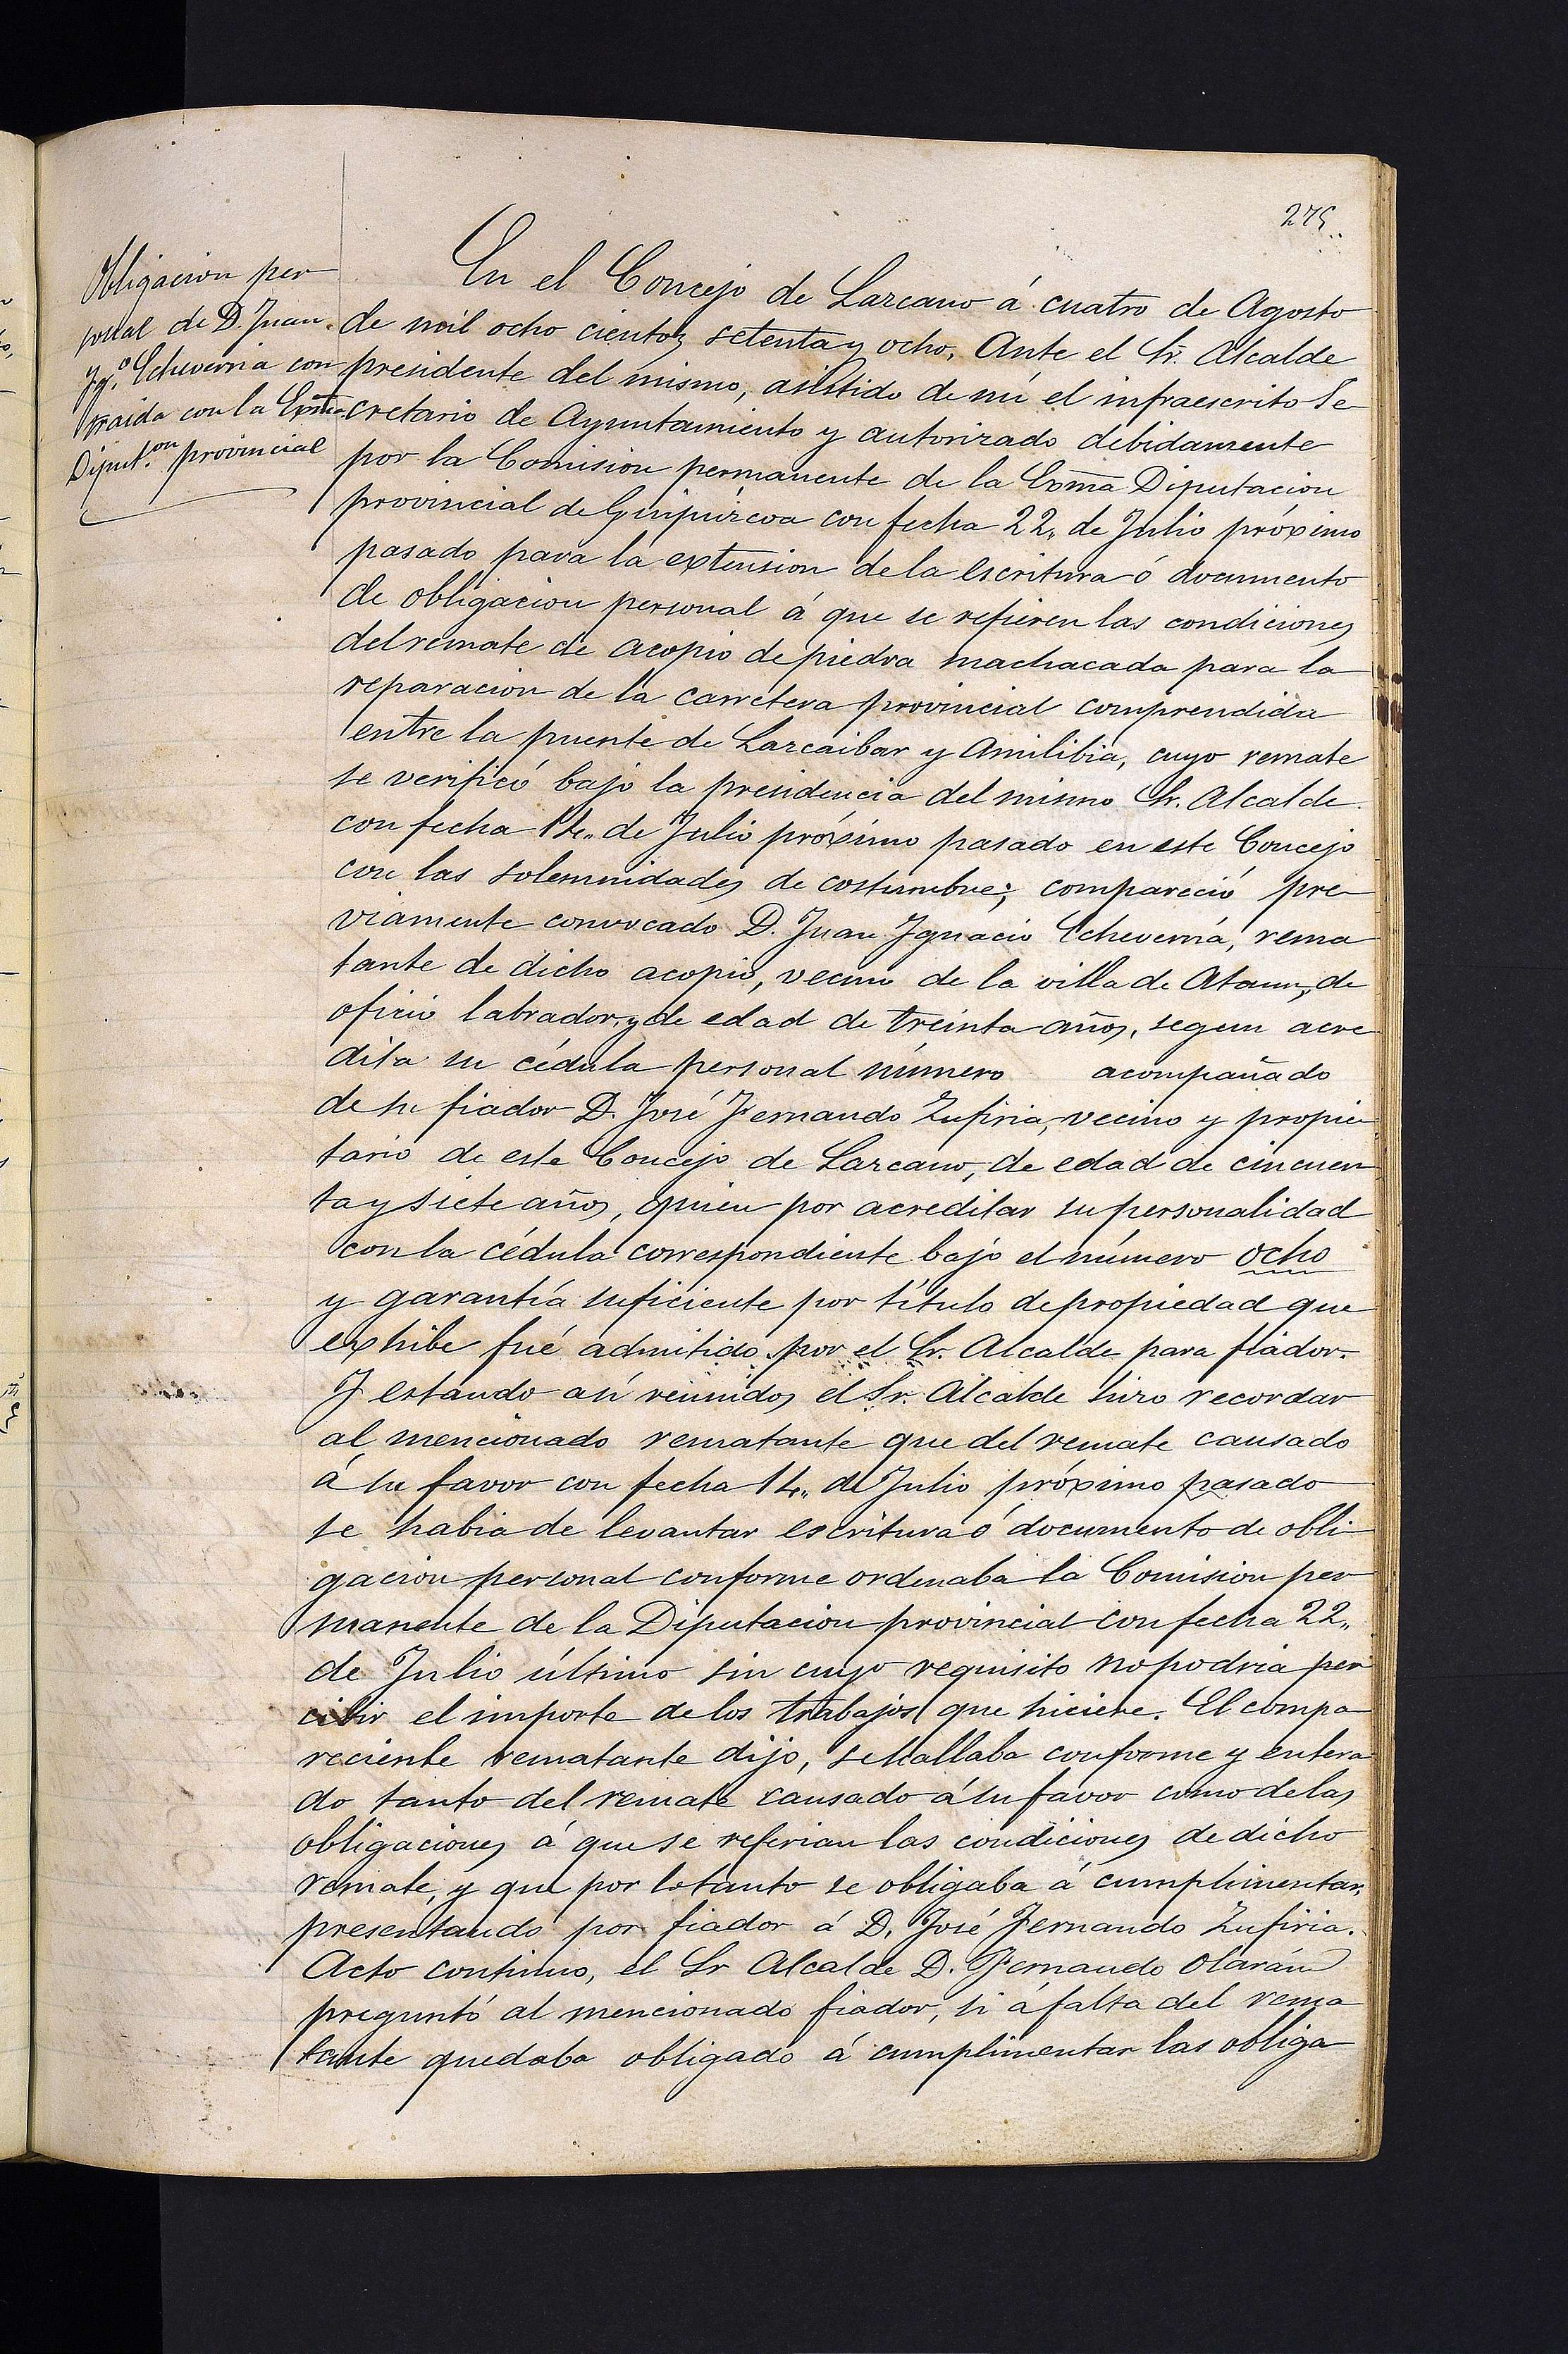 275..
Obligacion per
sonal de D. Juan
Ygº. Echeverria con
traida con la Exma
Diput.on provincial
En el Concejo de Lazcano á cuatro de Agosto
de mil ocho cientos setenta y ocho. Ante el Sr. Alcalde
presidente del mismo, asistido de mi el infraescrito Se
cretario de Ayuntamiento y autorizado debidamente
por la Comision permanente de la Exma Diputacion
provincial de Guipúzcoa con fecha 22,, de Julio próximo
pasado para la extension de la escritura ó documento
de obligacion personal á que se refieren las condiciones
del remate de acopio de piedra machacada para la
reparacion de la carretera provincial comprendida
entre la puente de Lazcaibar y Amilibia, cuyo remate
se verificó bajo la presidencia del mismo Sr. Alcalde
con fecha 14,, de Julio próximo pasado en este Concejo
con las solemnidades de costumbre; compareció pre
viamente convocado D. Juan Ignacio Echeverria, rema
tante de dicho acopio, vecino de la villa de Ataun, de
oficio labrador, y de edad de treinta años, segun acre
dita su cédula personal número acompañado
de su fiador D. José Fernando Zufiria, vecino y propie
tario de este Concejo de Lazcano, de edad de cincuen
ta y siete años, quien por acreditar su personalidad
con la cédula correspondiente bajo el número ocho
y garantía suficiente por título de propiedad que
exhibe fué admitido por el Sr. Alcalde para fiador.
Y estando así reunidos el Sr. Alcalde hizo recordar
al mencionado rematante que del remate causado
á su favor con fecha 14,, de Julio próximo pasado
se habia de levantar escritura ó documento de obli
gacion personal conforme ordenaba la Comision per
manente de la Diputacion provincial con fecha 22,,
de Julio último sin cuyo requisito no podria per
cibir el importe de los trabajos que hiciere. El compa
reciente rematante dijo, se hallaba conforme y entera
do tanto del remate causado á su favor como de las
obligaciones á que se referian las condiciones de dicho
remate, y que por lo tanto se obligaba á cumplimentar,
presentando por fiador á D. José Fernando Zufiria.
Acto continuo, el Sr Alcalde D. Fernando Olarán
preguntó al mencionado fiador, si á falta del rema
tante quedaba obligado á cumplimentar las obliga